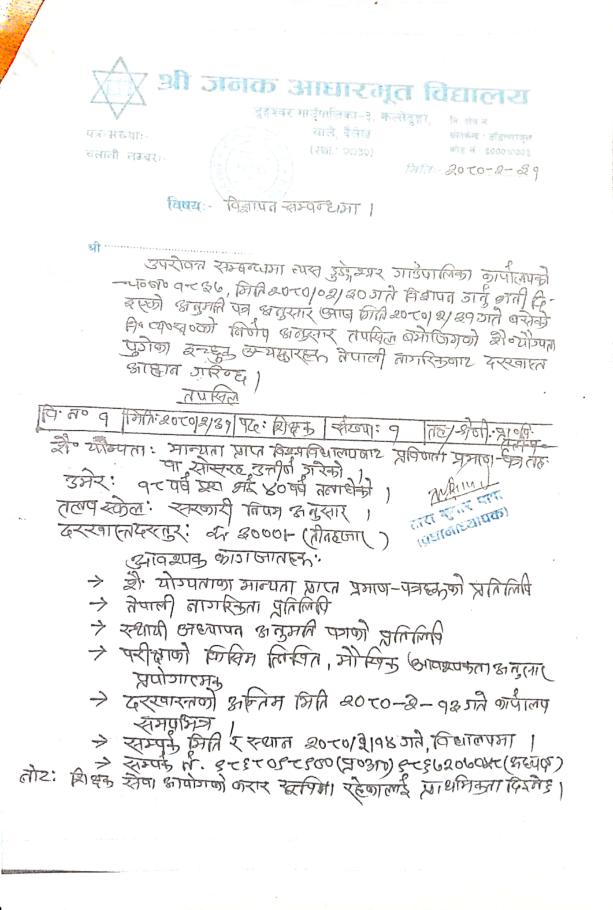 श्री जनक आधारभूत विद्यालय
डुङ्गेश्वर गाउँपालिका-३, कालोढुङ्गा,
पत्र संख्या:-
चलानी नम्बर:-
मिति:- २०८०-२-३१
विषय:- विज्ञापन सम्वन्धमा ।
श्री
उपरोक्त सम्वन्धमा त्यस डुङ्गेश्वर गाउँपालिका कार्यालयको
च०न० १८३७, मिति २०८०/०२/३० गते विज्ञापन गर्नु भनी दि-
इएको अनुमति पत्र अनुसार आज मिति २०८०/२/३१ गते बसेको
वि०व्य०स०को निर्णय अनुसार तपसिल बमोजिमको शै०योग्यता
पुगेका इच्छुक उम्मेद्वारहरू नेपाली नागरिकबाट दरखास्त
आह्वान गरिन्छ ।
तपसिल
वि. न० १ मिति:२०८०/२/३१ पद: शिक्षक संख्या: १ तह/श्रेणी:
शै० योग्यता: मान्यता प्राप्त विश्वविद्यालयबाट प्रविणता प्रमाण-पत्र तह
वा, सोसरह उत्तीर्ण गरेको ।
उमेर: १८ वर्ष पुरा भई ४० वर्ष ननाघेको ।
तलब स्केल: सरकारी नियम अनुसार ।
दरखास्त दस्तुर: रु ३०००।- (तीनहजार)
(प्रधानाध्यापक)
आवश्यक कागजातहरू:
→ शै. योग्यताका मान्यता प्राप्त प्रमाण-पत्रहरूको प्रतिलिपि
→ नेपाली नागरिकता प्रतिलिपि
→ स्थायी अध्यापन अनुमति पत्रको प्रतिलिपि
→ परीक्षाको किसिम लिखित, मौखिक (आवश्यकता अनुसार
प्रयोगात्मक
→ दरखास्तको अन्तिम मिति २०८०-३-१३ गते कार्यालय
समयभित्र ।
→ सम्पर्क मिति र स्थान २०८०/३/१४ गते, विद्यालयमा ।
→ सम्पर्क नं. (प्र०अ०) (अध्यक्ष)
नोट: शिक्षक सेवा आयोगको करार सूचीमा रहेकालाई प्राथमिकता दिइनेछ ।